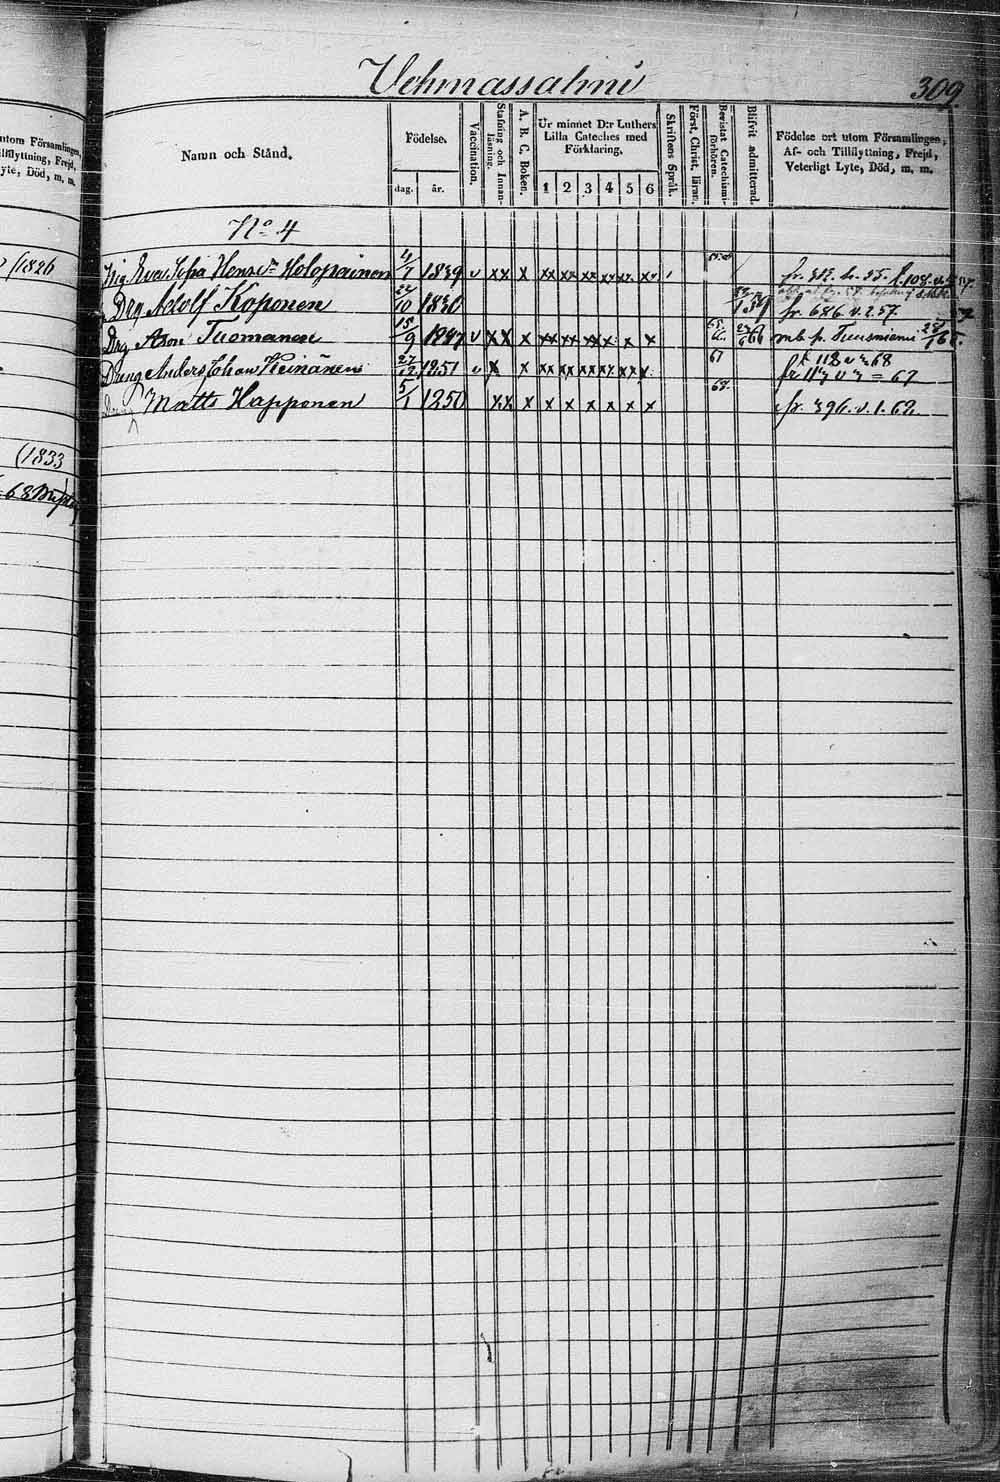 Vehmassalmi
309.
utom Församlingen,
Tillflyttning, Frejd,
Lyte, Död, m. m.
Namn och Stånd.
Födelse.
dag.
år.
Vaccination.
Stafning och Innanläsning.
A. B. C. Boken.
Ur minnet D:r Luthers
Lilla Cateches med
Förklaring.
1 2 3 4 5 6
Skriftens Språk.
Först. Christ. läran.
Bevistat Catechismiförhören.
Blifvit admitterad.
Födelse ort utom Församlingen,
Af- och Tillflyttning, Frejd,
Veterligt Lyte, Död, m. m.
No 4
(1826
Pig. Eva Sofia Henr:dr Holopainen 4/1 1839 v xx x xx xx xx xx xx xv
Drg Adolf Koponen 24/10 1830 fr. 686 v. 2. 57.
Drg Aron Tuomanen 15/9 1847 v x x x xx xx xx x x x mb. fr. Tuusniemi 28/1 65.
Dreng Anders Johan Heinänen 27/12 1851 v x x xx xx xx xx xx x 67 fr 113 v 3 = 67
Matts Happonen 5/1 1850 xx x x x x x x x 68. fr. 396. v. 1. 62.
(1833